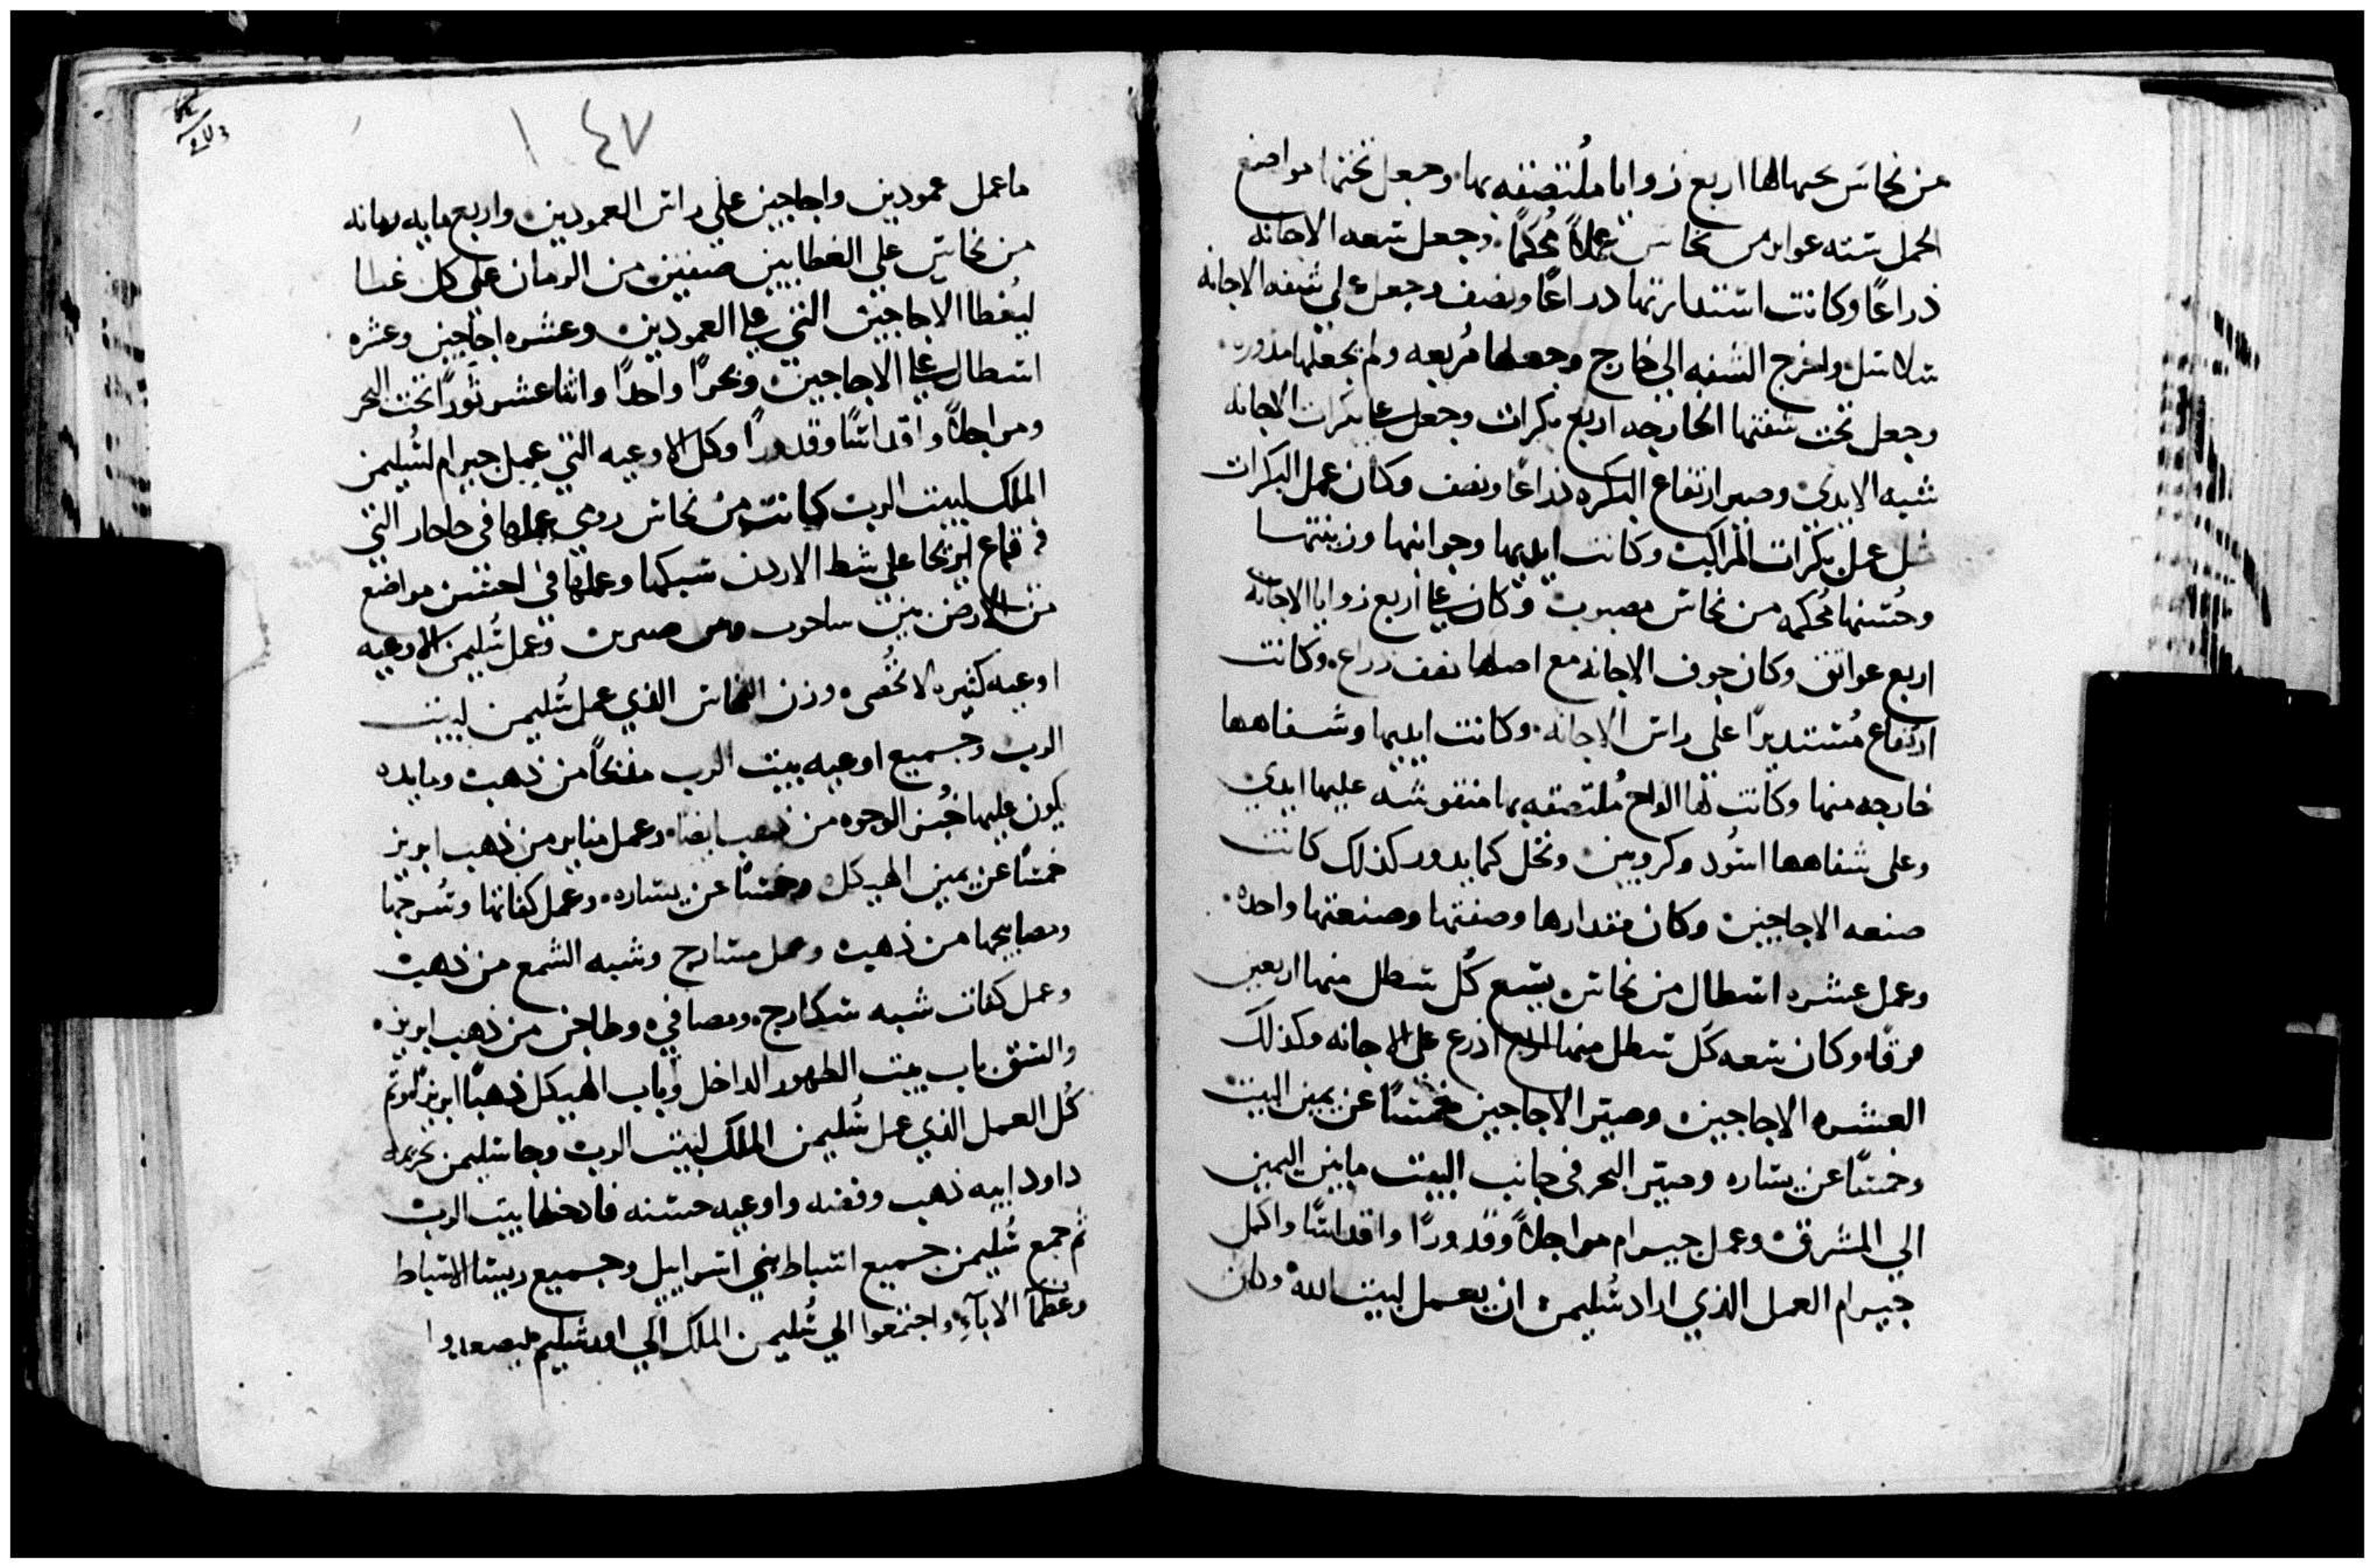 من نحاس يحملها اربع زوايا ملتصقه بها وجعل تحتها مواضع
الحمل سته عوابر من نحاس عملاً مُحكماً. وجعل سعه الاجانه
ذراعًا وكانت استدارتها دراعًا ونصف وجعل علي شفه الاجانه
سلاسل واخرج الشفه الي خارج وجعلها مُربعه ولم يجعلها مدوره.
وجعل تحت شفتها الخارجه اربع بكرات وجعل علي بكرات الاجانه
شبه الايدي وصير ارتفاع البكره ذراعًا ونصف وكان عمل البكرات
مثل عمل بكرات المراكب وكانت ايديها وجوانبها وزينتها
وحُسنها مُحكمه من نحاس مصبوب وكان علي اربع زوايا الاجانه
اربع عواتق وكان جوف الاجانه مع اصلها نصف ذراع. وكانت
ارتفاع مُستديرًا علي راس الاجانه. وكانت ايديها وشفاهها
خارجه منها وكانت لها الواح مُلتصقه بها منقوشه عليها ايدي
وعلى شفاهها اسُود وكروبين ونخل كما يدور كذلك كانت
صنعه الاجاجين وكان مقدارها وصفتها وصنعتها واحده.
وعمل عشره اسطال من نحاس يسع كُل سطل منها اربعين
فرقًا. وكان سعه كل سطل منها اربع اذرع علي الاجانه وكذلك
العشره الاجاجين وصير الاجاجين خمسًا عن يمين البيت
وخمسًا عن يساره وصير البحر في جانب البيت مابين اليمين
الي المشرق وعمل جيرام مواجلاً وقدورًا واقداسًا واكمل
جيرام العمل الذي اراد سُليمن ان يعمل لبيت الله وكان
١٤٧
ماعمل عمودين واجاجين علي راس العمودين. واربع مايه رمانه
من نحاس علي الغطايين صفين من الرمان علي كل غطا
ليُغطا الاجاجين التي علي العمودين وعشره اجاجين وعشره
اسطال علي الاجاجين وبحرًا واحدًا واثنا عشر ثورًا تحت البحر
ومراجلاً واقداسًا وقدورًا وكل الاوعيه التي عمل جيرام لسُليمن
الملك لبيت الرب كانت من نحاس رومي عملها في التي
في قاع ايريحا علي شط الاردن سبكها وعملها في احسن مواضع
من الارض بين ساحوت وبين صرين وعمل سُليمن الاوعيه
اوعيه كثيره لا تُحصى وزن النحاس الذي عمل سُليمن لبيت
الرب وجميع اوعيه بيت الرب مذبحًا من ذهب ومايده
يكون عليها خُبز الوجوه من ذهب ايضا. وعمل مناير من ذهب ابريز
خمسًا عن يمين الهيكل وخمسًا عن يساره. وعمل كفاتها وسُرجها
ومصابيحها من ذهب وعمل مسارج وشبه الشمع من ذهب
وعمل كفات شبه سكارج. ومصافي. وطاجن من ذهب ابريز.
والشق باب بيت الطهور الداخل وباب الهيكل ذهبًا ابريز وتم
كُل العمل الذي عمل سُليمن الملك لبيت الرب وجا سليمن
داود ابيه ذهب وفضه واوعيه حسنه فادخلها بيت الرب
ثم جمع سُليمن جميع اسباط بني اسراييل وجميع ريسا الاسباط
وعظمآ الابآء. واجتمعوا الي سُليمن الملك الي اورشليم ليصعدوا